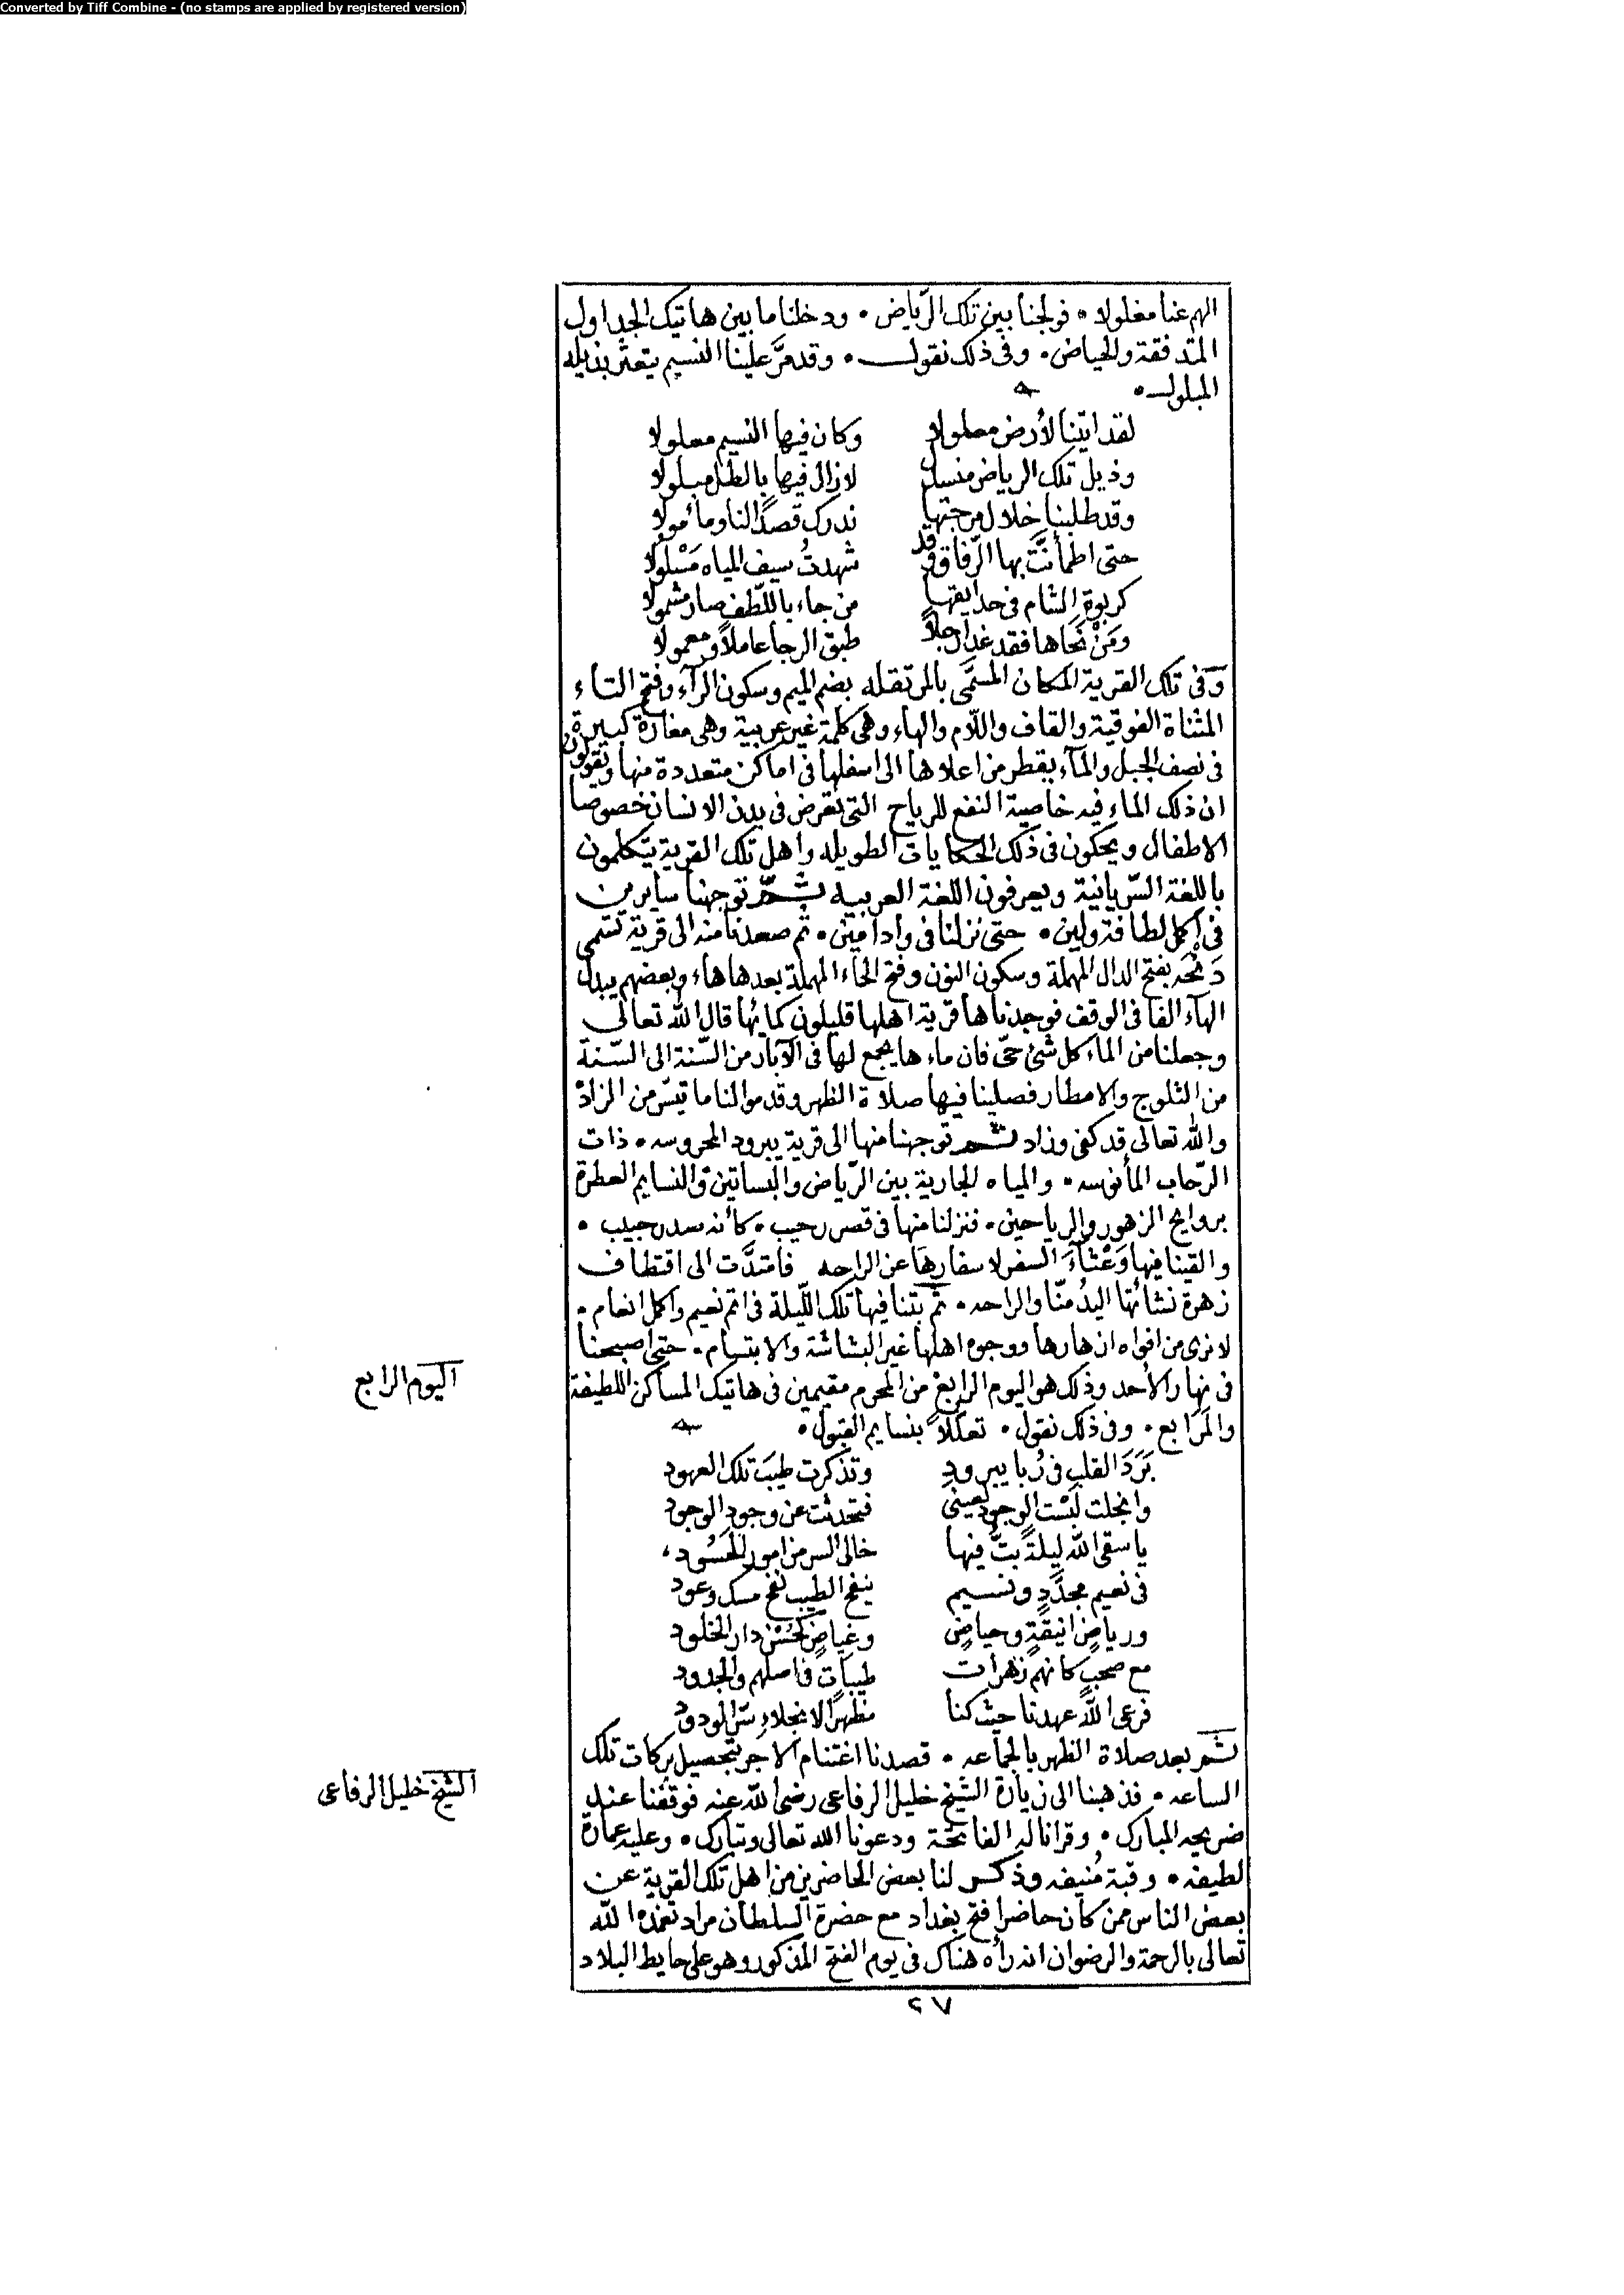 Converted by Tiff Combine - (no stamps are applied by registered version)
الهم عنا مغلولا • فولجنا بين تلك الرّياض • ودخلنا ما بين هاتيك الجداول
المتدفقة والحياض • وفى ذلك نقول • وقد مرَّ علينا النسيم يتعثر بذيله
المبلول •
لقد اتينا لأرض معلولا وكان فيها النسيم معلولا
وذيل تلك الرياض منسبل لازال فيها بالطل مبلولا
وقد طلبنا خلال مرجتها ندرك قصدًا لنا ومأمولا
حتى اطمأنَّت بها الرّفاق وقد شهدتُ سيف المياه مَسْلولا
كربوة الشام فى حدايقها من جاء باللّطف صار مشمولا
ومَنْ نَحَاها فقد غدا رجلاً طبق الرجا عاملاً ومعمولا
وفى تلك القرية المكان المسمَّى بالمرتقله بضم الميم وسكون الرآء وفتح التاء
المثناة الفوقية والقاف واللّام والهاء وهى كلمة غير عربية وهى مغارة كبيرة
فى نصف الجبل والمآء يقطر من اعلاها الى اسفلها فى اماكن متعددة منها ويقولون
ان ذلك الماء فيه خاصية النفع للرياح التى تعرض فى بدن الانسان خصوصا
الاطفال ويحكون فى ذلك الحكايات الطويله واهل تلك القرية يتكلمون
باللغة السّريانية ويعرفون اللغة العربيه ثمّ توجهنا سايرين
فى اكمل لطافة ولين • حتى نزلنا فى واد امين • ثم صعدنا منه الى قرية تسمى
دَنْحَه بفتح الدال المهملة وسكون النون وفتح الحاء المهملة بعدها هاء وبعضهم يبدل
الهآء الفا فى الوقف فوجدناها قرية اهلها قليلون كمائها قال الله تعالى
وجعلنا من الماء كل شئ حىّ فان ماءها يجمع لها فى الآبار من السّنة الى السّنة
من الثلوج والامطار فصلينا فيها صلاة الظهر وقدموا لنا ما تيسّر من الزاد
والله تعالى قد كفى وزاد ثم توجهنا منها الى قرية يبرود المحروسه • ذات
الرّحاب المأنوسه • والمياه الجارية بين الرّياض والبساتين والنسايم العطرة
بروايح الزهور والرياحين • فنزلنا منها فى قصر رحيب • كأنه صدر حبيب •
والقينا فيها وَعْثَآءَ السفر لاسفارها عن الراحه فامتدَّت الى اقتطاف
زهرة نشأتها اليدُ منّا والراحه • ثم بتنا فيها تلك اللّيلة فى اتم نعيم واكمل انعام •
لا نرى من افواه ازهارها ووجوه اهلها غير البشاشة والابتسام • حتى اصبحنا
فى نهار الأحد وذلك هو اليوم الرابع من المحرم مقيمين فى هاتيك المساكن اللطيفة
اليوم الرابع
والمَرَابع • وفى ذلك نقول • تعللاً بنسايم القبول •
بَرَدَ القلب فى رُبا يبرودِ وتذكرت طيبَ تلك العهود
وانجلت بنْت الوجود لعينى فتحدثت عن وجود الوجود
يا سقى الله ليلةً بتُّ فيها خالى السر من امور الحَسُود
فى نعيم مجدَّدٍ ونسيم ينفح الطيب نفح مسك وعود
ورياضٍ انيقةٍ وحياضٍ وغياضٍ كحُسْن دار الخلود
مع صحبٍ كانهم زهرات طيباتٌ فى اصلهم والجدود
فرعى اللهُ عهدنا حيث كنا مظهرًا لانجلاء سرّ الودود
ثم بعد صلاة الظهر بالجماعه • قصدنا اغتنام الاجر بتحصيل بركات تلك
الساعه • فذهبنا الى زيارة الشيخ خليل الرفاعى رضى الله عنه فوقفنا عند
الشيخ خليل الرفاعى
ضريحه المبارك • وقرانا له الفاتحة ودعونا الله تعالى وتبارك • وعليه عمارة
لطيفه • وقبة مُنيفه وذكر لنا بعض الحاضرين من اهل تلك القرية عن
بعض الناس ممن كان حاضرا فتح بغداد مع حضرة السلطان مراد تغمده الله
تعالى بالرحمة والرضوان انه رأه هناك فى يوم الفتح المذكور وهو على حايط البلاد
٢٧